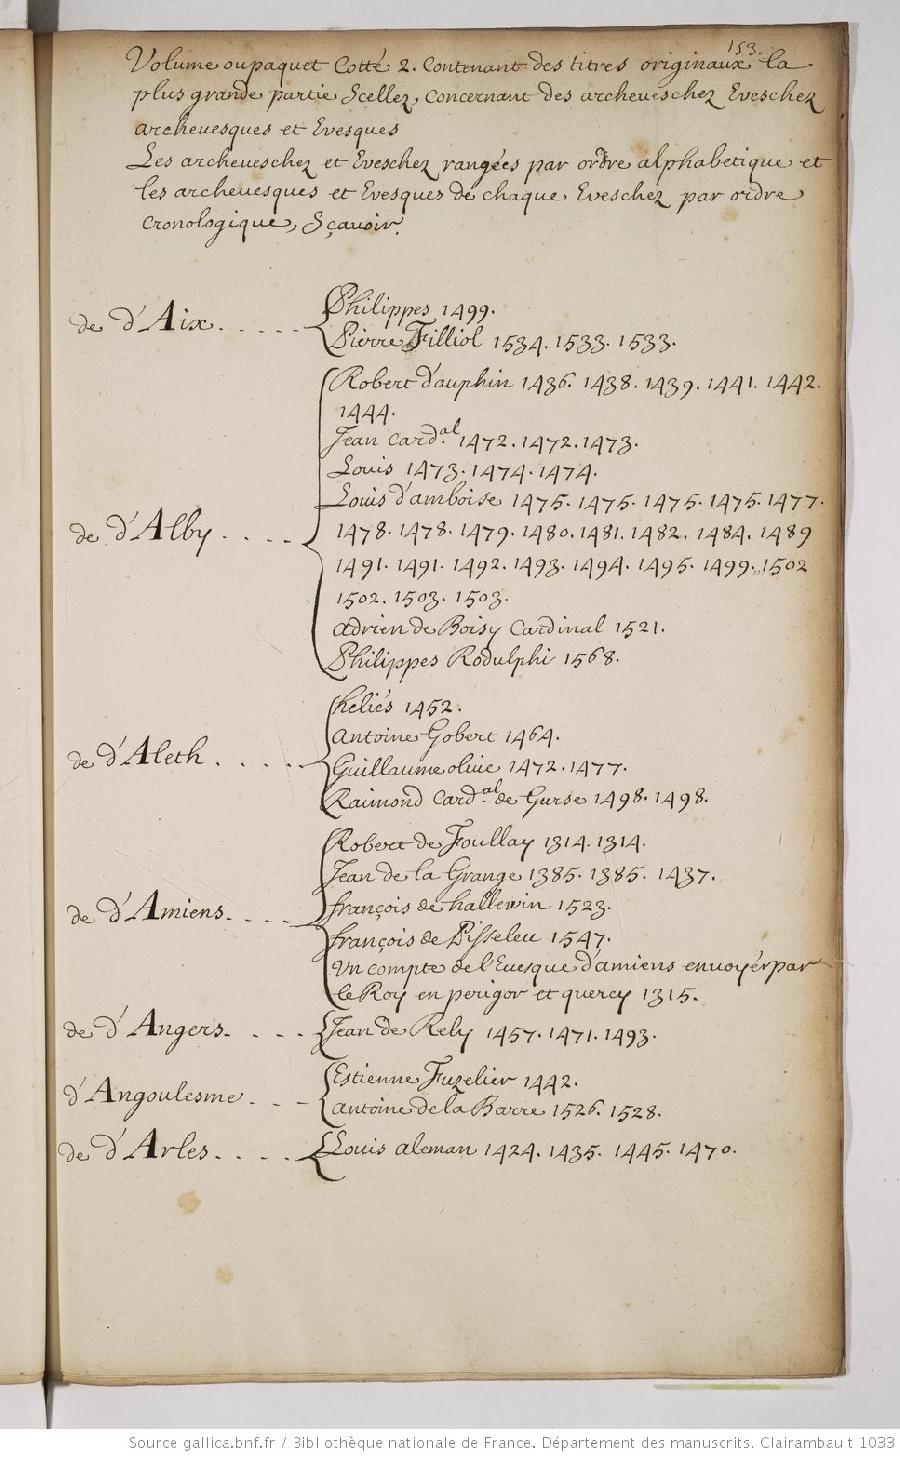 153.
Volume ou paquet Cotté 2. Contenant des titres originaux la
plus grande partie Scellez, Concernant des archeueschez Eveschez
archeuesques et Evesques
Les archeueschez et Eveschez rangées par ordre alphabetique et
les archeuesques et Evesques de chaque Eveschez par ordre
cronologique, Sçauoir.
de d'Aix . . . . .
Philippes 1499.
Pierre Filliol 1534. 1533. 1533.
de d'Alby . . . .
Robert d'auphin 1436. 1438. 1439. 1441. 1442.
1444.
Jean Card.al 1472. 1472. 1473.
Louis 1473. 1474. 1474.
Louis d'amboise 1475. 1475. 1475. 1475. 1477.
1478. 1478. 1479. 1480. 1481. 1482. 1484. 1489
1491. 1491. 1492. 1493. 1494. 1495. 1499. 1502
1502. 1503. 1503.
adrien de Boisy Cardinal 1521.
Philippes Rodulphi 1568.
de d'Aleth . . . . .
heliés 1452.
Antoine Gobert 1464.
Guillaume oliue 1472. 1477.
Raimond Card.al de Gurse 1498. 1498.
de d'Amiens. . . .
Robert de Foullay 1314. 1314.
Jean de la Grange 1385. 1385. 1437.
françois de hallewin 1523.
françois de Pisseleu 1547.
Un compte de l'Euesque d'amiens envoyér par
le Roy en perigor et quercy 1315.
de d'Angers. . . .
Jean de Rely 1457. 1471. 1493.
d'Angoulesme . . .
Estienne Fuzelier 1442.
antoine de la Barre 1526. 1528.
de d'Arles. . . . .
Louis aleman 1424. 1435. 1445. 1470.
Source gallica.bnf.fr / Bibliothèque nationale de France. Département des manuscrits. Clairambault 1033